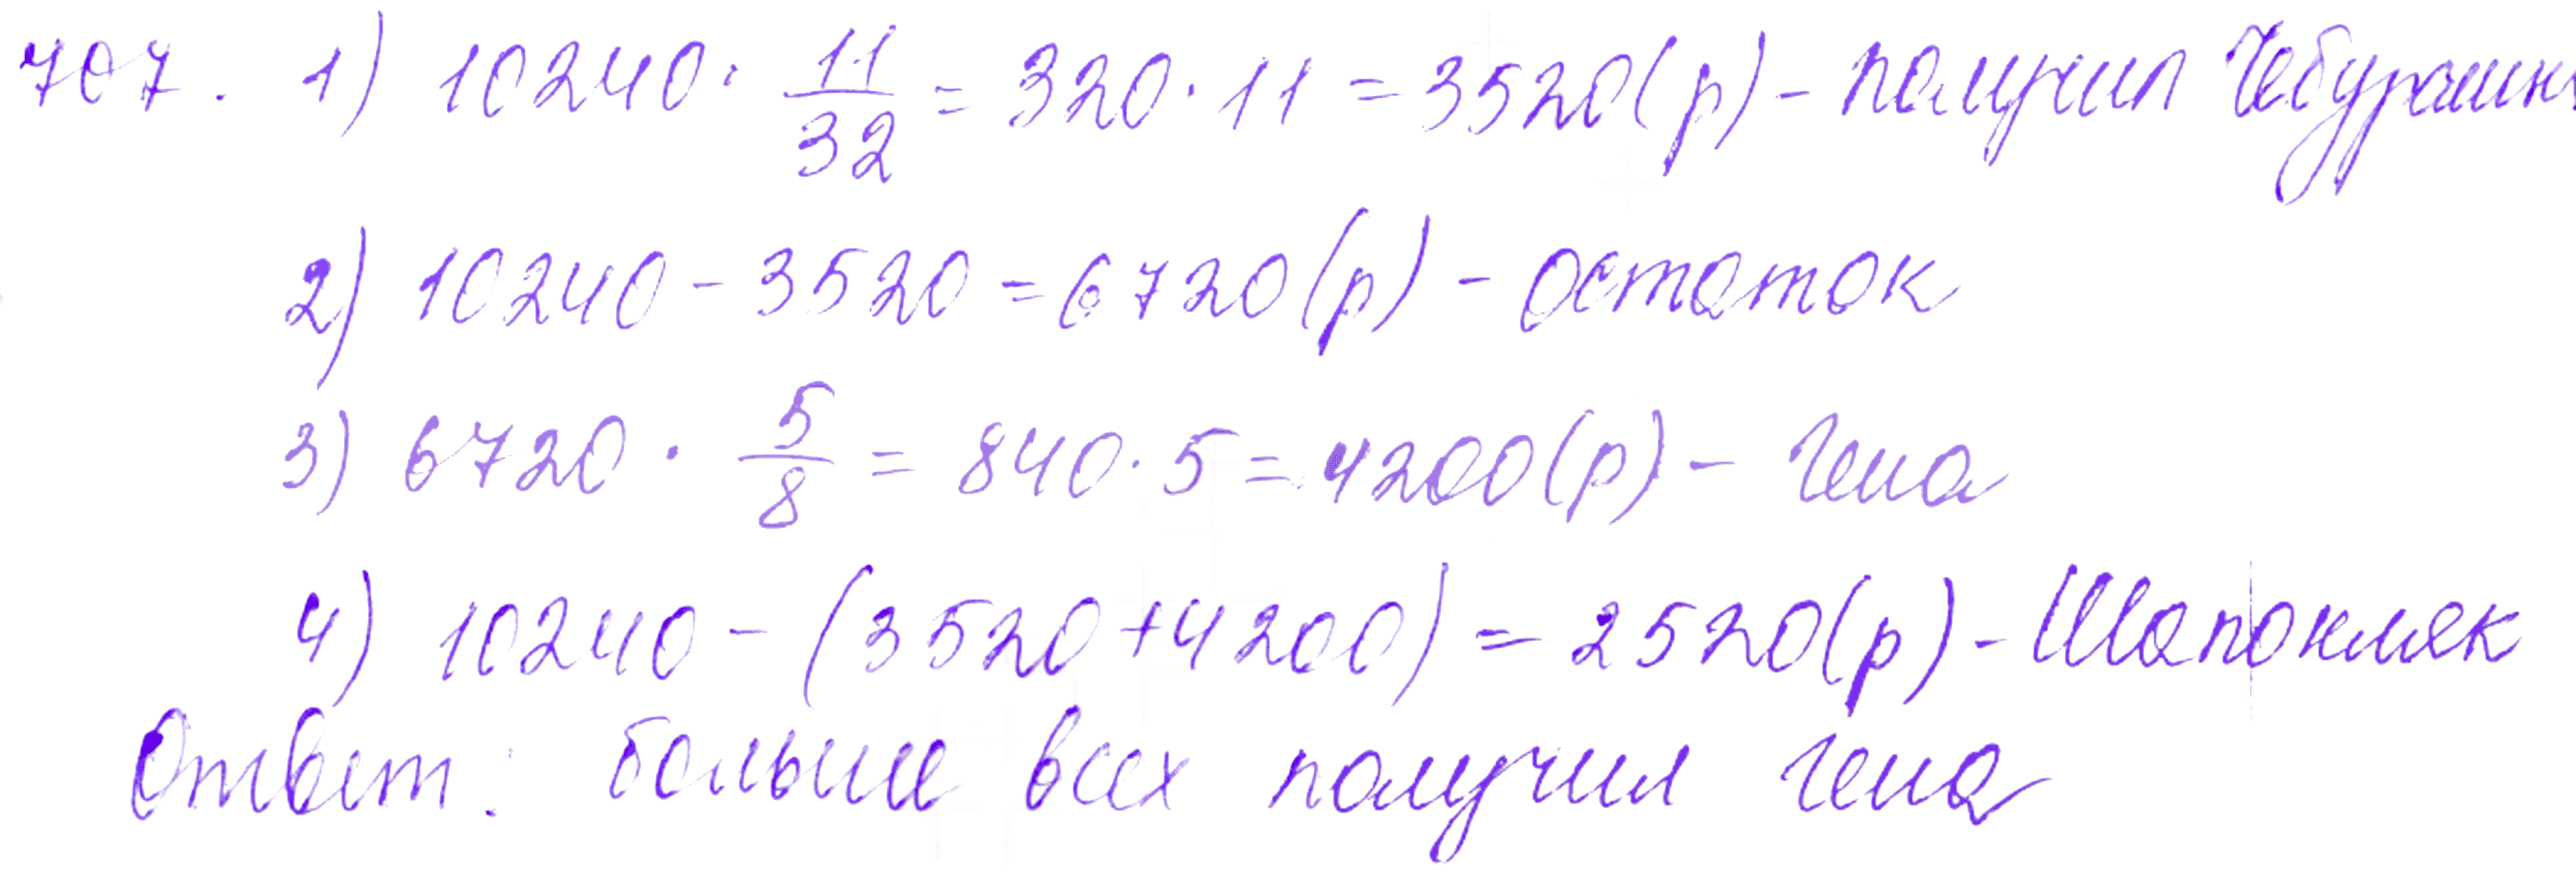 707. 1) 10240 · 11/32 = 320 · 11 = 3520 (р) - получил Чебурашк
2) 10240 - 3520 = 6720 (р) - остаток
3) 6720 · 5/8 = 840 · 5 = 4200 (р) - Гена
4) 10240 - (3520 + 4200) = 2520 (р) - Шапокляк
Ответ: больше всех получил Гена